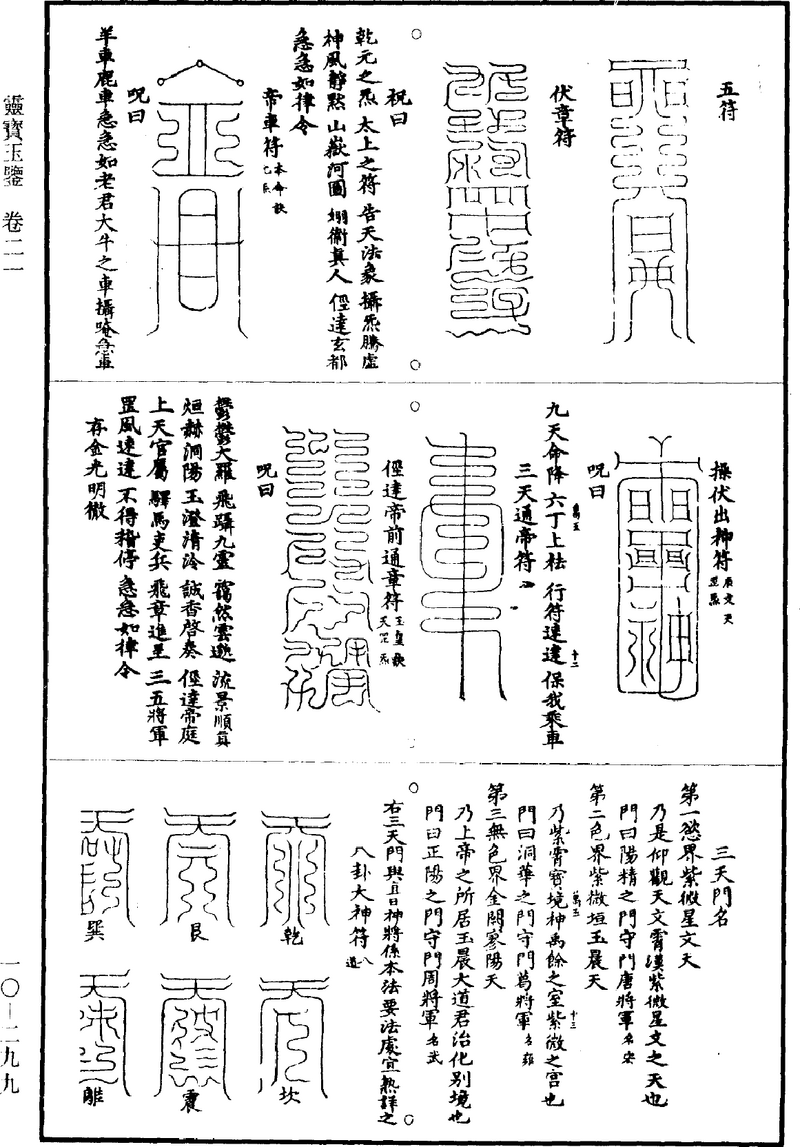 靈寶玉鑒 卷二一
一〇—二九九
五符
伏章符
祝曰
乾元之炁 太上之符 告天法象 攝炁騰虛
神風靜默 山嶽河圖 翊衛真人 徑達玄都
急急如律令
帝車符
本命訣
呪曰
羊車鹿車急急如老君大牛之車攝唵急車
操伏出神符
呪曰
九天命降 六丁上祛 行符速達 保我乘車
萬五
十二
三天通帝符
徑達帝前通章符
玉皇訣
呪曰
鬱鬱大羅 飛躡九靈 靄然雲遊 流景順真
烜赫洞陽 玉澄清泠 誠香啓奏 徑達帝庭
上天官屬 驛馬吏兵 飛章進至 三五將軍
罡風速達 不得稽停 急急如律令
存金光明徹
三天門名
第一慾界紫微星文天
乃是仰觀天文霄漢紫微星文之天也
門曰陽精之門守門唐將軍名宏
第二色界紫微垣玉晨天
乃紫霄寶境神禹餘之室紫微之宮也
萬五
十三
門曰洞華之門守門葛將軍名雍
第三無色界金闕寥陽天
乃上帝之所居玉晨大道君治化別境也
門曰正陽之門守門周將軍名武
右三天門與直日神將係本法要法處宜熟詳之
八卦大神符八道
乾
艮
巽
坎
震
離